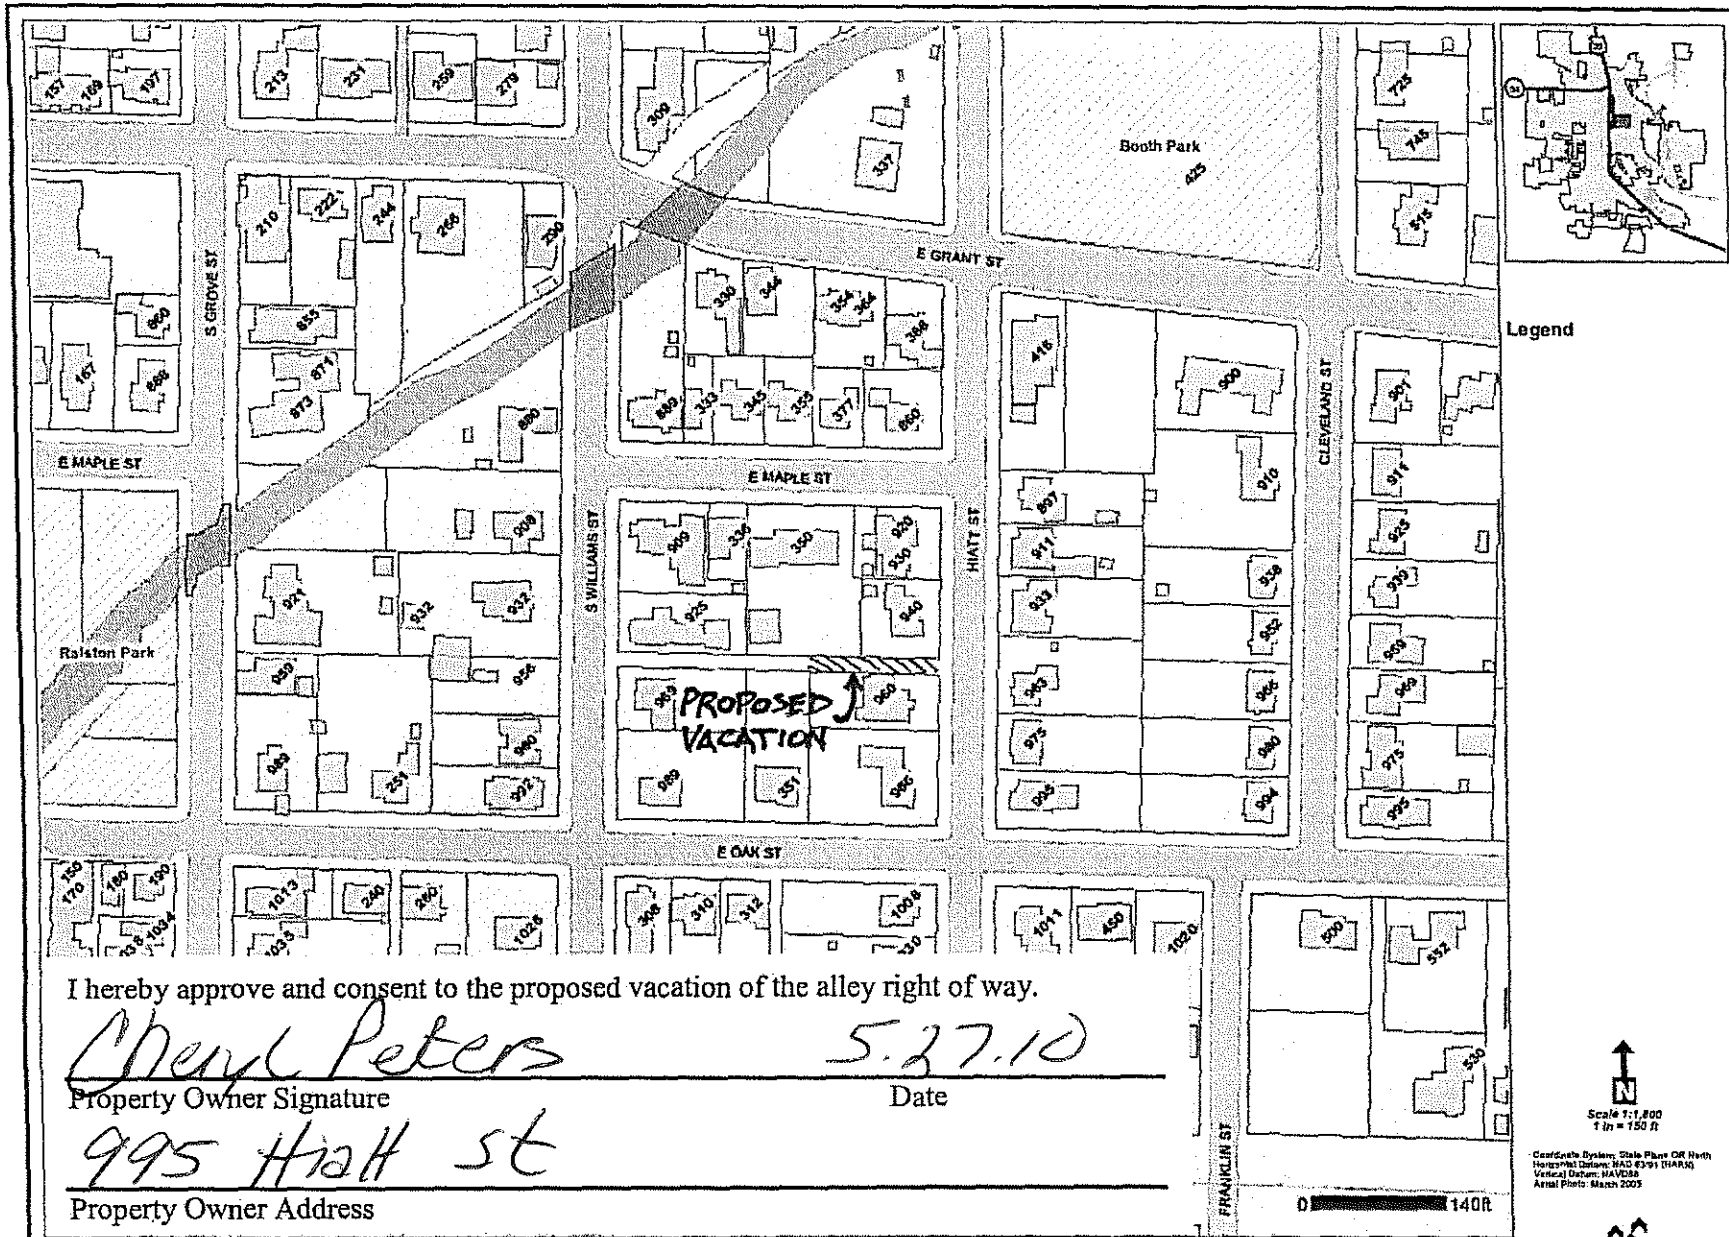 157
169
197
213
231
259
279
309
337
Booth Park
425
725
745
815
210
222
244
266
290
E GRANT ST
S GROVE ST
855
871
873
860
888
167
330
344
354
364
388
889
333
345
355
377
860
880
416
900
901
CLEVELAND ST
Legend
E MAPLE ST
E MAPLE ST
S WILLIAMS ST
HIATT ST
908
909
336
350
920
930
897
910
911
911
925
921
932
932
925
940
933
938
939
952
Ralston Park
959
956
959
PROPOSED
VACATION
960
963
966
969
989
251
980
992
989
351
986
975
980
975
995
994
995
E OAK ST
170
180
190
1034
1013
240
260
1035
1025
308
310
312
1008
1011
450
1020
500
552
530
FRANKLIN ST
I hereby approve and consent to the proposed vacation of the alley right of way.
Cheryl Peters 5.27.10
Property Owner Signature Date
995 Hiatt St
Property Owner Address
N
Scale 1:1,800
1 in = 150 ft
Coordinate System: State Plane OR North
Horizontal Datum: NAD 83/91 (HARN)
Vertical Datum: NAVD88
Aerial Photo: March 2005
0 140ft